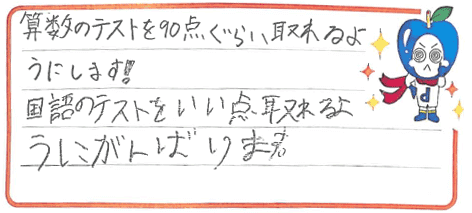 算数のテストを90点ぐらい取れるよ
うにします!!
国語のテストをいい点取れるよ
うにがんばります
d